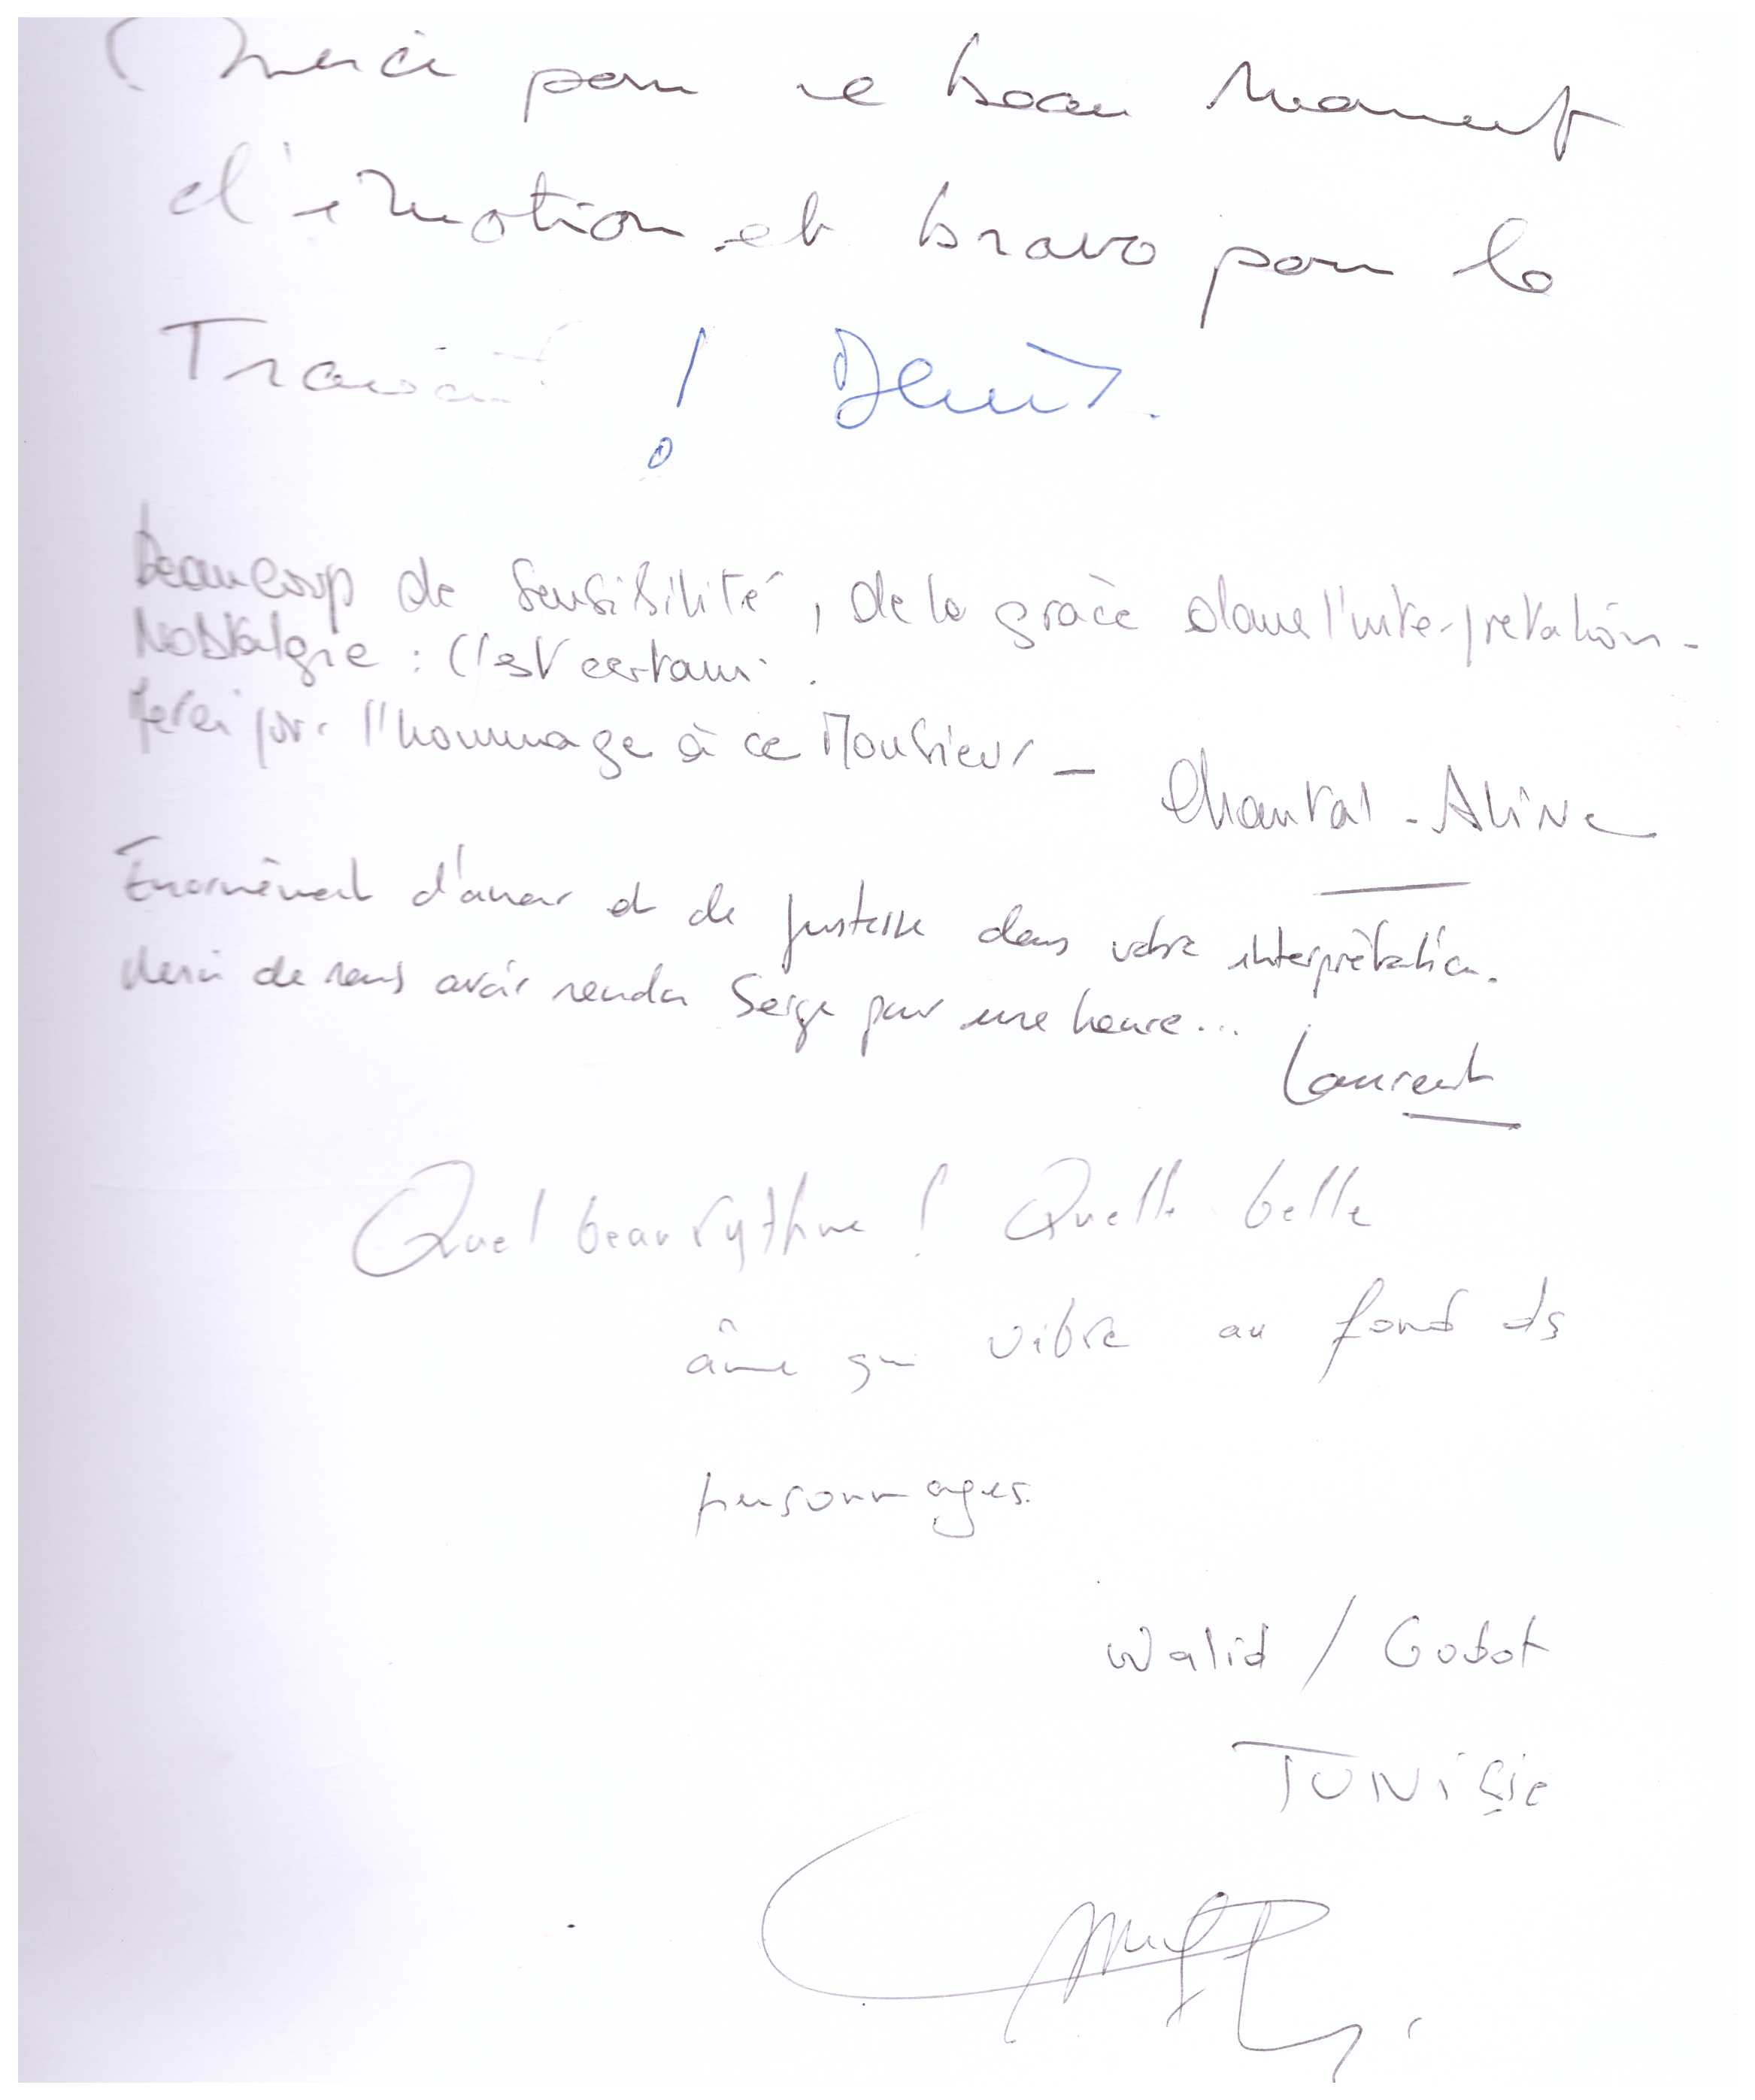 Merci pour ce beau moment
d'émotion et bravo pour le
Travail ! Denis.
Beaucoup de Sensibilité, de la grâce dans l'interprétation -
Nostalgie : C'est certain.
Merci pour l'hommage à ce Monsieur -
Chantal - Aline
Enormément d'amour et de justesse dans votre interprétation.
Merci de nous avoir rendu Serge pour une heure...
Laurent
Quel beau rythme ! Quelle belle
âme qui vibre au fond ds
personnages.
Walid / Godot
TUNiSie